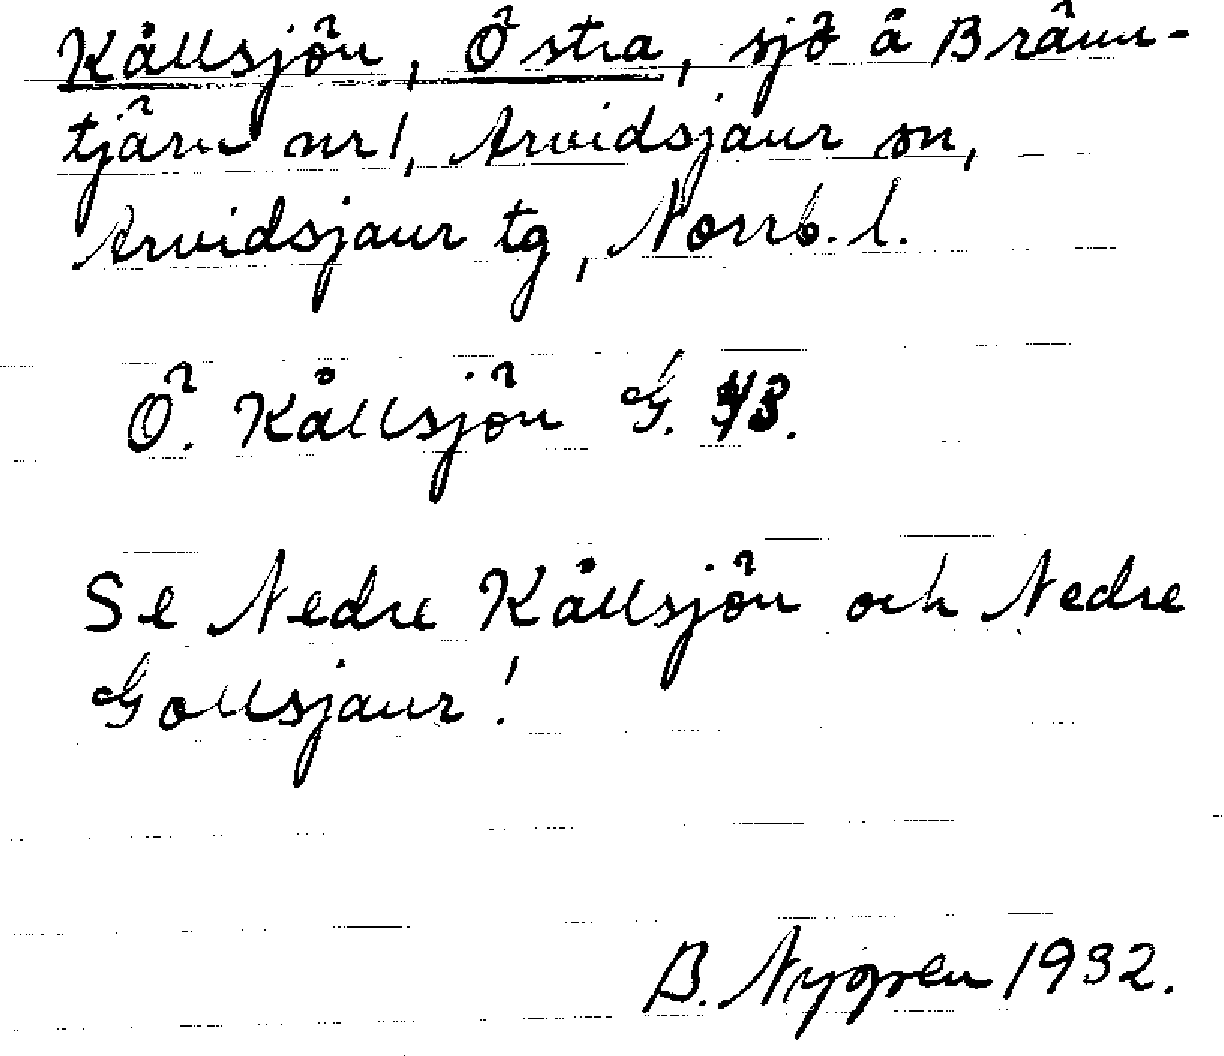 Kållsjön, Östra, sjö å Bränn-
tjärn nr 1, Arvidsjaur sn,
Arvidsjaur tg, Norrb. l.
Ö. Kållsjön G.
Se Nedre Kållsjön och Nedre
Gollsjaur!
B. Nygren 1932.